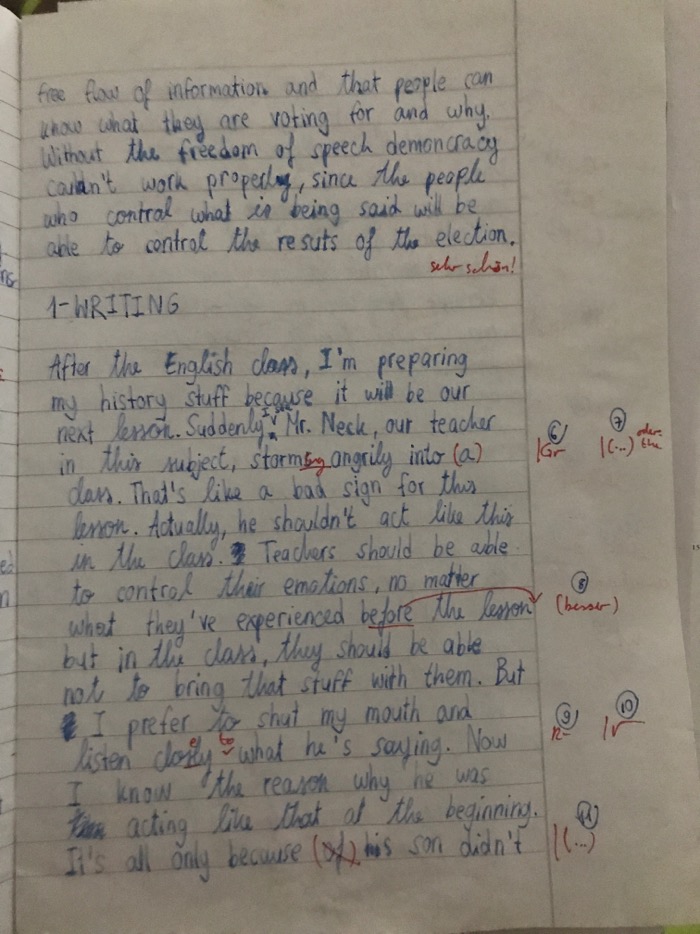 free flow of information and that people can
know what they are voting for and why.
Without the freedom of speech demoncracy
couldn't work properly, since the people
who control what is being said will be
able to control the resuts of the election.
sehr schön!
1-WRITING
After the English class, I'm preparing
my history stuff because it will be our
next lesson. Suddenly, Mr. Neck, our teacher
in this subject, storms angrily into (a)
6 7
Gr (...) oder: the
class. That's like a bad sign for this
lesson. Actually, he shouldn't act like this
in the class. Teachers should be able
to control their emotions, no matter
what they've experienced before the lesson
8
(besser)
but in the class, they should be able
not to bring that stuff with them. But
I prefer to shut my mouth and
9 10
R
listen closely to what he's saying. Now
I know the reason why he was
acting like that at the beginning.
It's all only because (of) his son didn't
11
(...)
ns
ed
n